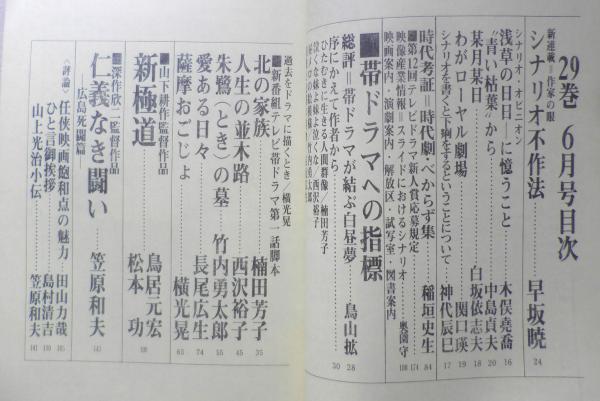 29巻 6月号目次
新連載＝作家の眼
シナリオ不作法 早坂暁 24
シナリオ・オピニオン
浅草の日日―に憶うこと 木俣堯喬 16
“青い枯葉”から 中島貞夫 20
某月某日 白坂依志夫 18
わがローヤル劇場 関口瑛 19
シナリオを書くと下痢をするということについて 神代辰巳 17
時代考証＝時代劇・べからず集 稲垣史生 84
■第12回テレビドラマ新人賞応募規定 174
映像産業情報＝スライドにおけるシナリオ 奥薗守 108
映画案内・演劇案内・解放区・試写室・図書案内
■帯ドラマへの指標
総評＝帯ドラマが結ぶ白昼夢 鳥山拡 28
序にかえて作者から 30
ひたむきに生きる人間群像／楠田芳子
泣くな妹よ妹よ泣くな／西沢裕子
過去をドラマに描くとき／横光晃
■新番組テレビ帯ドラマ第一話脚本
北の家族 楠田芳子 35
人生の並木路 西沢裕子 45
朱鷺（とき）の墓 竹内勇太郎 55
愛ある日々 長尾広生 74
薩摩おごじょ 横光晃 63
■山下耕作監督作品
新極道 鳥居元宏 松本功
■深作欣二監督作品
仁義なき闘い 笠原和夫
―広島死闘篇―
〈評論〉 任侠映画飽和点の魅力 田山力哉
ひと言御挨拶 島村清吉
山上光治小伝 笠原和夫 141